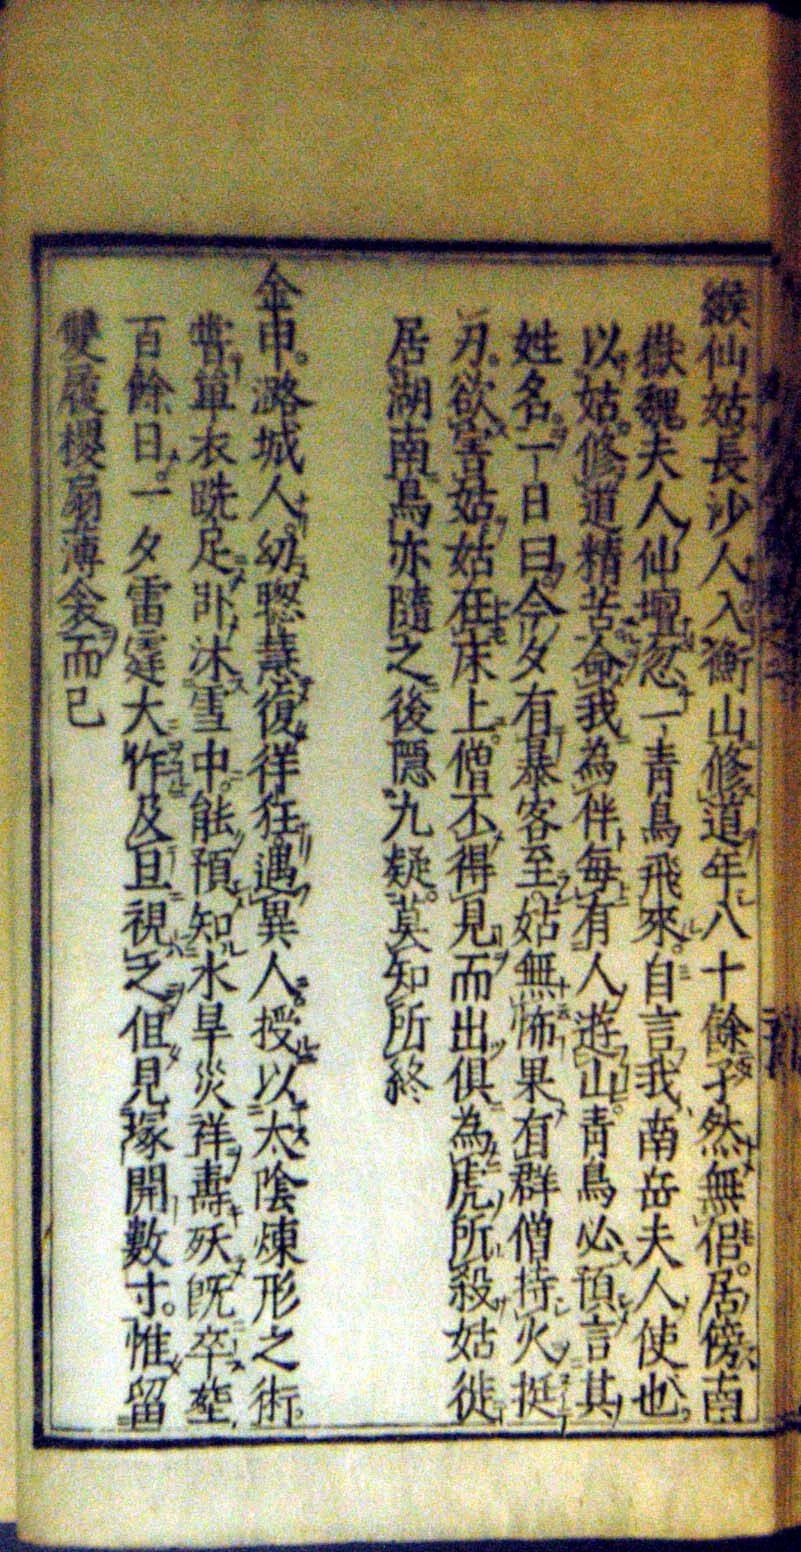 緱仙姑長沙人入衡山修道年八十餘孑然無侶居傍南
嶽魏夫人仙壇忽一青鳥飛來自言我南岳夫人使也
以姑修道精苦命我為伴每有人遊山青鳥必預言其
姓名一日曰今夕有暴客至姑無怖果有群僧持火挺
刃欲害姑姑在床上僧不得見而出俱為虎所殺姑徙
居湖南鳥亦隨之後隱九疑莫知所終
金申潞城人幼聰慧復佯狂遇異人授以太陰煉形之術
嘗單衣跣足卧沐雪中能預知水旱災祥壽殀既卒塟
百餘日一夕雷霆大作及旦視之但見塚開數寸惟留
雙履椶扇薄衾而已